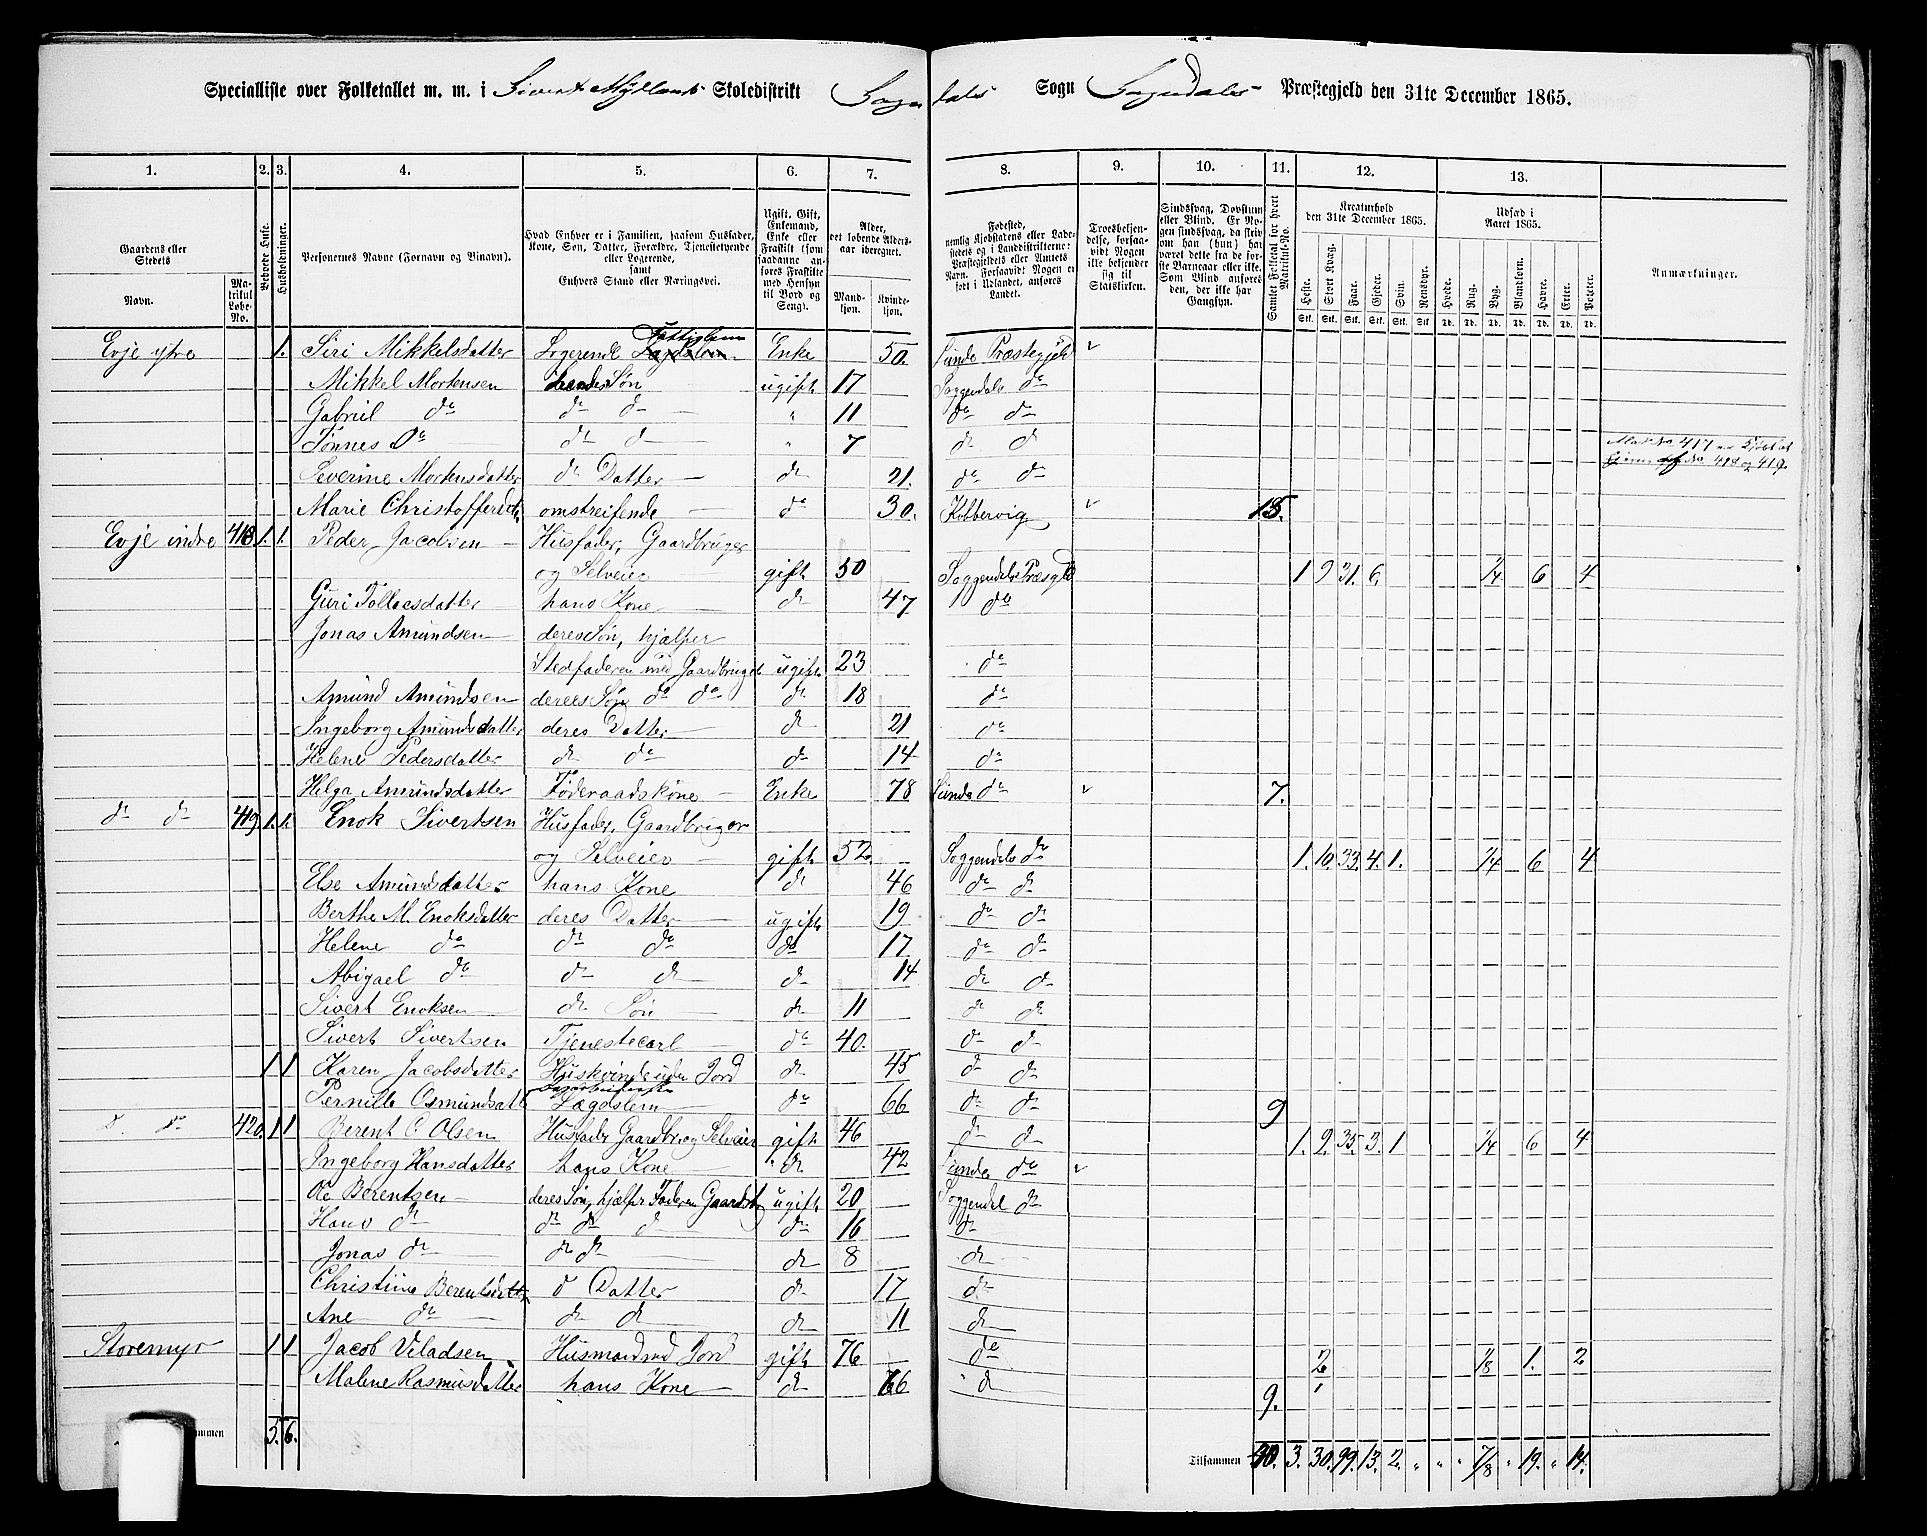 Specialliste over Folketallet m. m. i Sivert Myllands Skoledistrikt Soggendals Sogn Soggendals Præstegjeld den 31te December 1865.
1. 2. 3. 4. 5. 6. 7. 8. 9. 10. 11. 12. 13.
Gaardens eller Stedets
Navn. Matrikul Løbe-No.
Beboede Huse.
Husholdninger.
Personernes Navne (Fornavn og Tilnavn).
Hvad Enhver er i Familien, saasom Husfader, Kone, Søn, Datter, Forældre, Tjenestetyende eller Logerende, samt Enhvers Stand eller Næringsvei.
Ugift, Gift, Enkemand, Enke eller Fraskilt (saasom saadanne anføres Fraskilte med Hensyn til Bord og Seng).
Alder, det løbende Alders-aar iberegnet.
Mandkjøn. Kvindekjøn.
Fødested, nemlig Kjøbstadens eller Ladestedets og i Landdistrikterne: Præstegjeldets eller Amtets Navn. Forsaavidt Nogen er født i Udlandet, anføres Landet.
Troesbekjendelse, forsaavidt Nogen ikke bekjender sig til Statskirken.
Sindssvag, Døvstum eller Blind. Er Nogen sindssvag, da skrives om han (hun) har været dette fra de første Barneaar eller ikke. Som Blind anføres den, der ikke har Gangsyn.
Samlet Folketal for hvert Matrikul-No.
Kreaturhold den 31te December 1865.
Heste. Stort Kvæg. Faar. Gjeder. Svin. Rensdyr.
Udsæd i Aaret 1865.
Hvede. Rug. Byg. Blandkorn. Havre. Erter. Poteter.
Anmærkninger.
Evje ytre 1. Siri Mikkelsdatter Logerende Fattiglem Enke 50. Lunde Præstegjeld
Mikkel Mortensen hendes Søn ugift 17 Soggendals do
Gabriel do do do " 11 do do
Tønnes Do do do " 7 do do
Severine Mortensdatter do Datter do 21. do do
Marie Christoffersdtr. omstreifende do 30. Kobbervig 15.
Evje indre 418. 1. 1. Peder Jacobsen Husfader, Gaardbruger
og Selveier gift 50 Soggendals Præsgld 1 9 31. 6. 1/4 6 4
Guri Tollacsdatter hans Kone do 47 do
Jonas Amundsen deres Søn, hjælper
Stedfaderen med Gaardbruget ugift 23 do
Amund Amundsen deres Søn do do do 18 do
Ingeborg Amundsdatter deres Datter do 21 do
Helene Pedersdatter do do do 14 do
Helga Amundsdatter Føderaadskone Enke 78 Lunde do 7.
do do 419 1. 1. Enok Sivertsen Husfader, Gaardbruger
og Selveier gift 52. Soggendals do 1. 10. 33. 4. 1. 1/4 6 4
Else Amundsdatter hans Kone do 46 do do
Berthe M. Enoksdatter deres Datter ugift 19 do do
Helene do do do do 17 do do
Abigael do do do do 14 do do
Sivert Enoksen do Søn do 11 do do
Sivert Sivertsen Tjenestecarl do 40. do do
1 1 Karen Jacobsdatter Huskvinde uden Jord do 45 do do
Pernille Osmundsdatt Lægdslem do 66 do do 9
do do 420. 1 1 Berent C Olsen Husfader Gaardbr. og Selveier gift 46 do do 1. 9. 35. 3. 1 1/4 6 4
Ingeborg Hansdatter hans Kone do 42 Lunde do
Ole Berentsen deres Søn, hjælper Faderen Gaardsbg ugift 20 Soggendal do
Hans do do do do do 16 do
Jonas do do do do 8 do
Christine Berentsdatter do Datter do 17 do
Ane do do do do 11 do
Storemyr 1 1 Jacob Veladsen Husmand med Jord gift 76 do 2 1/8 1. 2
Malene Rasmusdatter hans Kone do 66 do 9.
5. 6.
Tilsammen 40. 3. 30. 99. 13. 2. " " " 7/8 " 19. " 14.